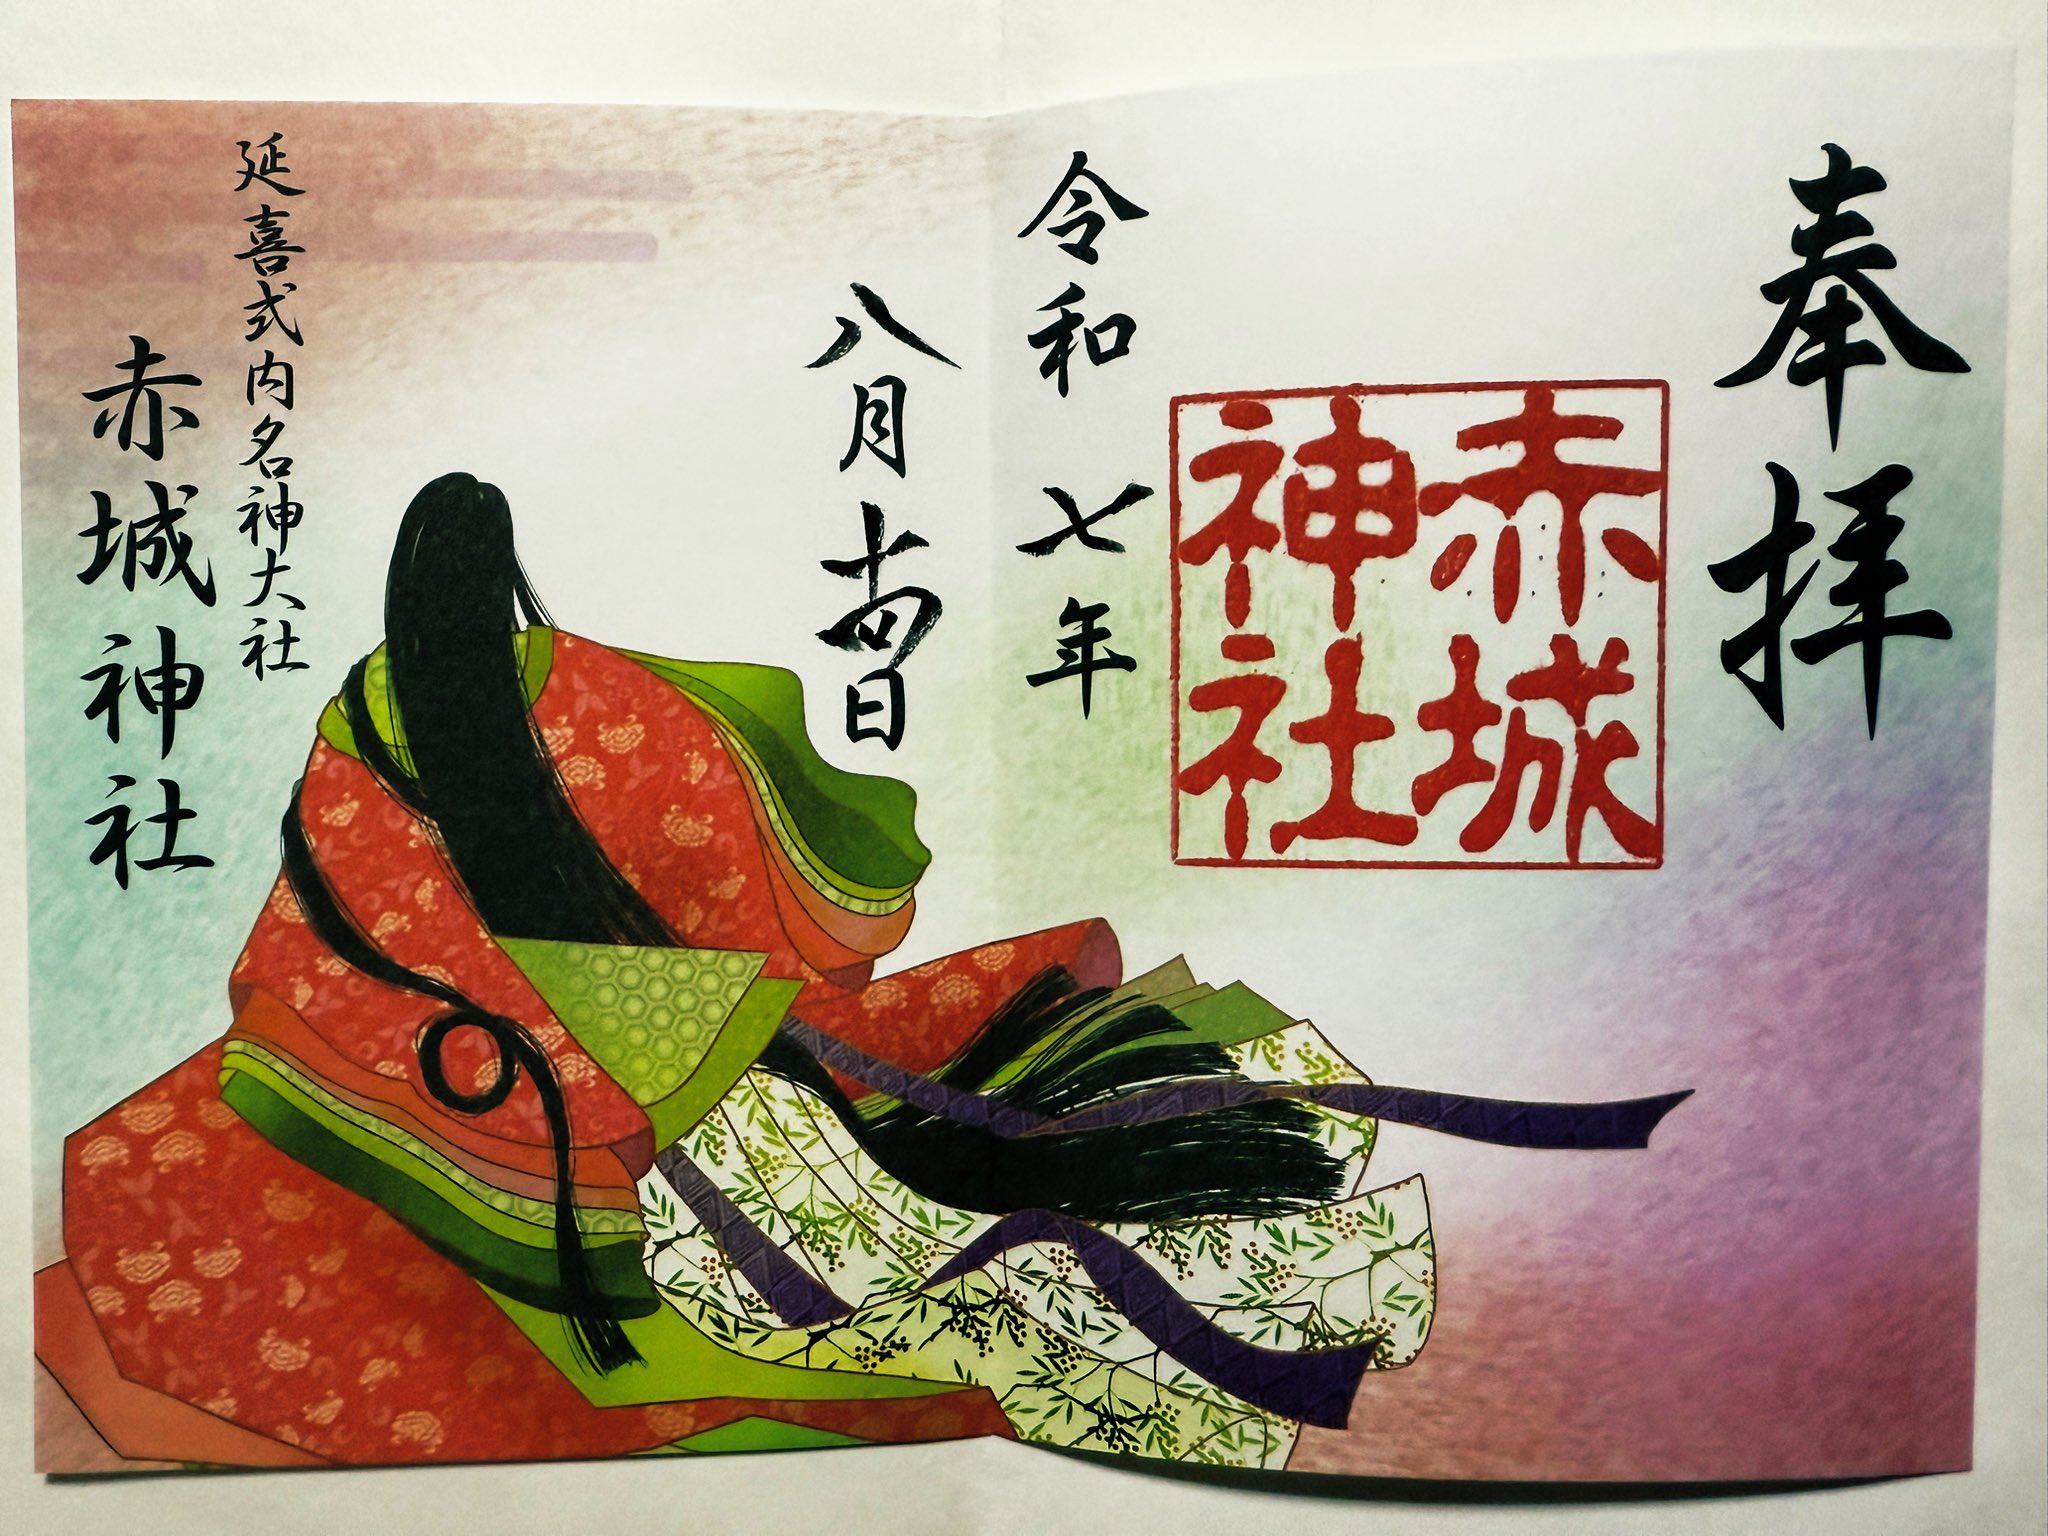 奉拝
赤城
神社
令和七年
八月十四日
延喜式内名神大社
赤城神社